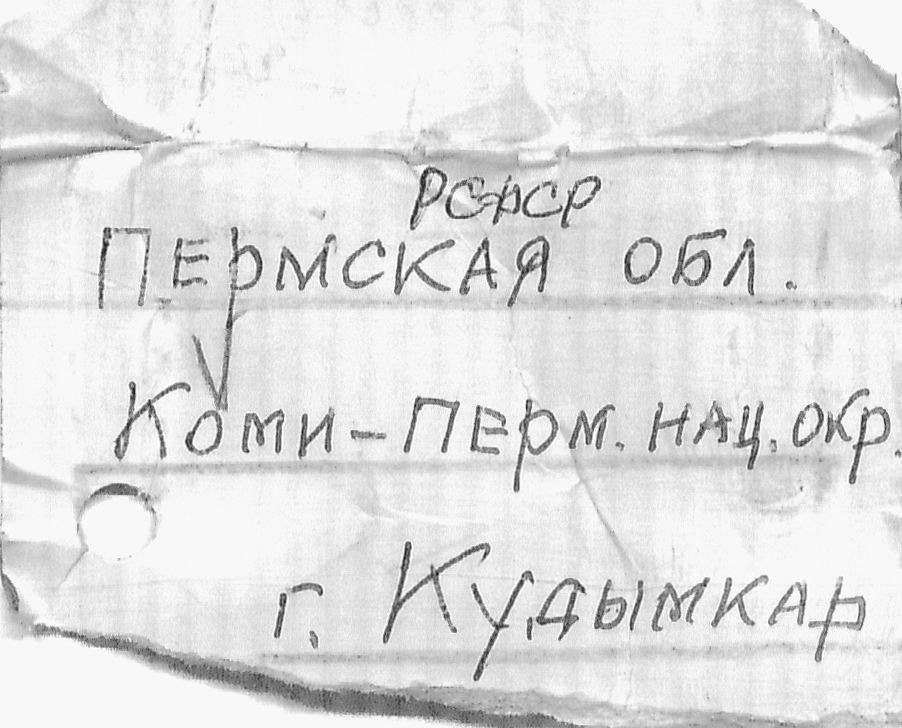 РСФСР
Пермская обл.
Коми-Перм. нац. окр.
г. Кудымкар